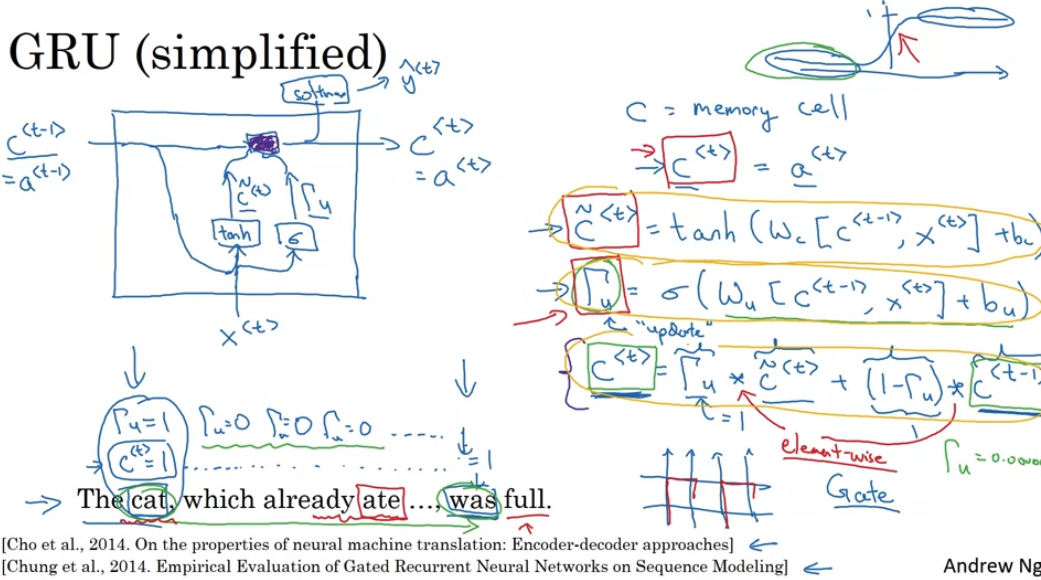 GRU (simplified)
softmax → ŷ<t>
c<t-1>
= a<t-1>
c<t>
= a<t>
c̃<t>
Γu
tanh
σ
x<t>
1
C = memory cell
→ c<t> = a<t>
→ c̃<t> = tanh (Wc [c<t-1>, x<t>] + bc)
→ Γu = σ (Wu [c<t-1>, x<t>] + bu)
"update"
c<t> = Γu * c̃<t> + (1-Γu) * c<t-1>
= 1
element-wise
Γu = 0.0000
Gate
Γu = 1 Γu = 0 Γu = 0 Γu = 0 ....
c<t> = 1 ............ = 1
→ The cat, which already ate ..., was full.
[Cho et al., 2014. On the properties of neural machine translation: Encoder-decoder approaches] ←
[Chung et al., 2014. Empirical Evaluation of Gated Recurrent Neural Networks on Sequence Modeling] ←
Andrew Ng